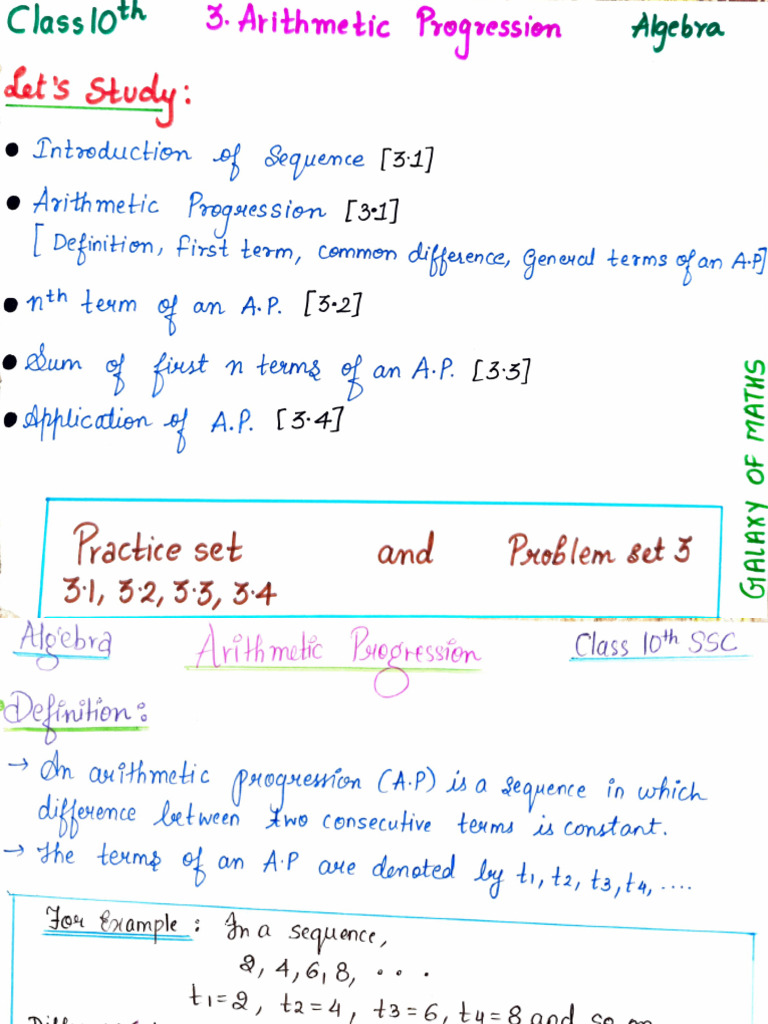 Class 10th 3. Arithmetic Progression Algebra
Let's Study:
• Introduction of Sequence [3.1]
• Arithmetic Progression [3.1]
[Definition, first term, common difference, General terms of an A.P]
• nth term of an A.P. [3.2]
• Sum of first n terms of an A.P. [3.3]
• Application of A.P. [3.4]
GALAXY OF MATHS
Practice set and Problem set 3
3.1, 3.2, 3.3, 3.4
Algebra Arithmetic Progression Class 10th SSC
Definition:
→ An arithmetic progression (A.P) is a sequence in which
difference between two consecutive terms is constant.
→ The terms of an A.P are denoted by t1, t2, t3, t4, ....
For Example: In a sequence,
2, 4, 6, 8, ...
t1=2, t2=4, t3=6, t4=8 and so on